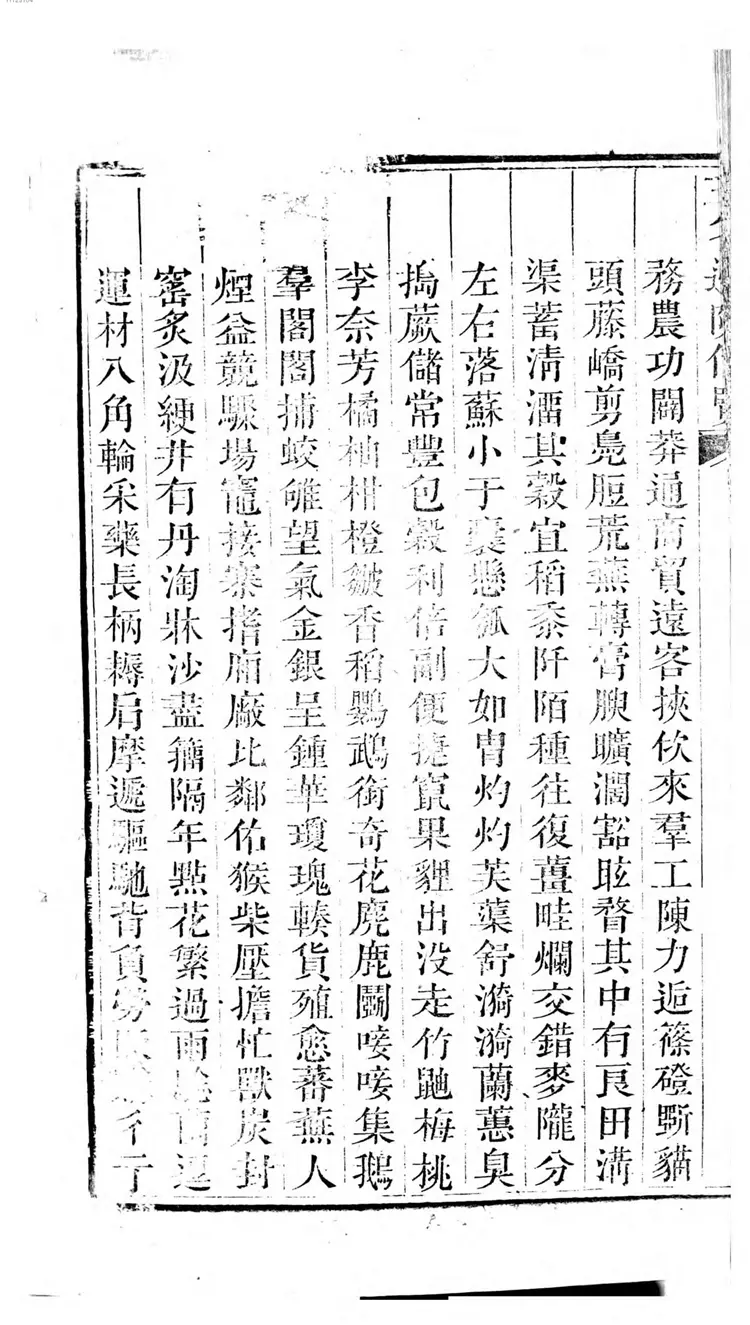 務農功闢莽通商貿遠客挾伙來羣工陳力逅篠磴斲貓
頭藤嶠剪鳧脰荒蕪轉膏腴曠濶豁眩瞀其中有良田溝
渠蓄淸澑其穀宜稻黍阡陌種往復薑畦爛交錯麥隴分
左右落蘇小于囊懸瓠大如冑灼灼芙蕖舒漪漪蘭蕙臭
搗蕨儲常豐包穀利倍副便捷竄果貍出没走竹鼬梅桃
李奈芳橘柚柑橙皺香稻鸚鵡銜奇花麂鹿鬭唼唼集鵝
羣閣閣捕蛟雊望氣金銀呈鍾華瓊瑰輳貨殖愈蕃蕪人
煙益競驟場竈接寨措廂廠比鄰佑猴柴壓擔忙獸炭封
窰炙汲綆井有丹淘牀沙盡籀隔年點花繁過雨
運材八角輪采藥長柄耨肩摩遞驅馳背負勞彳亍